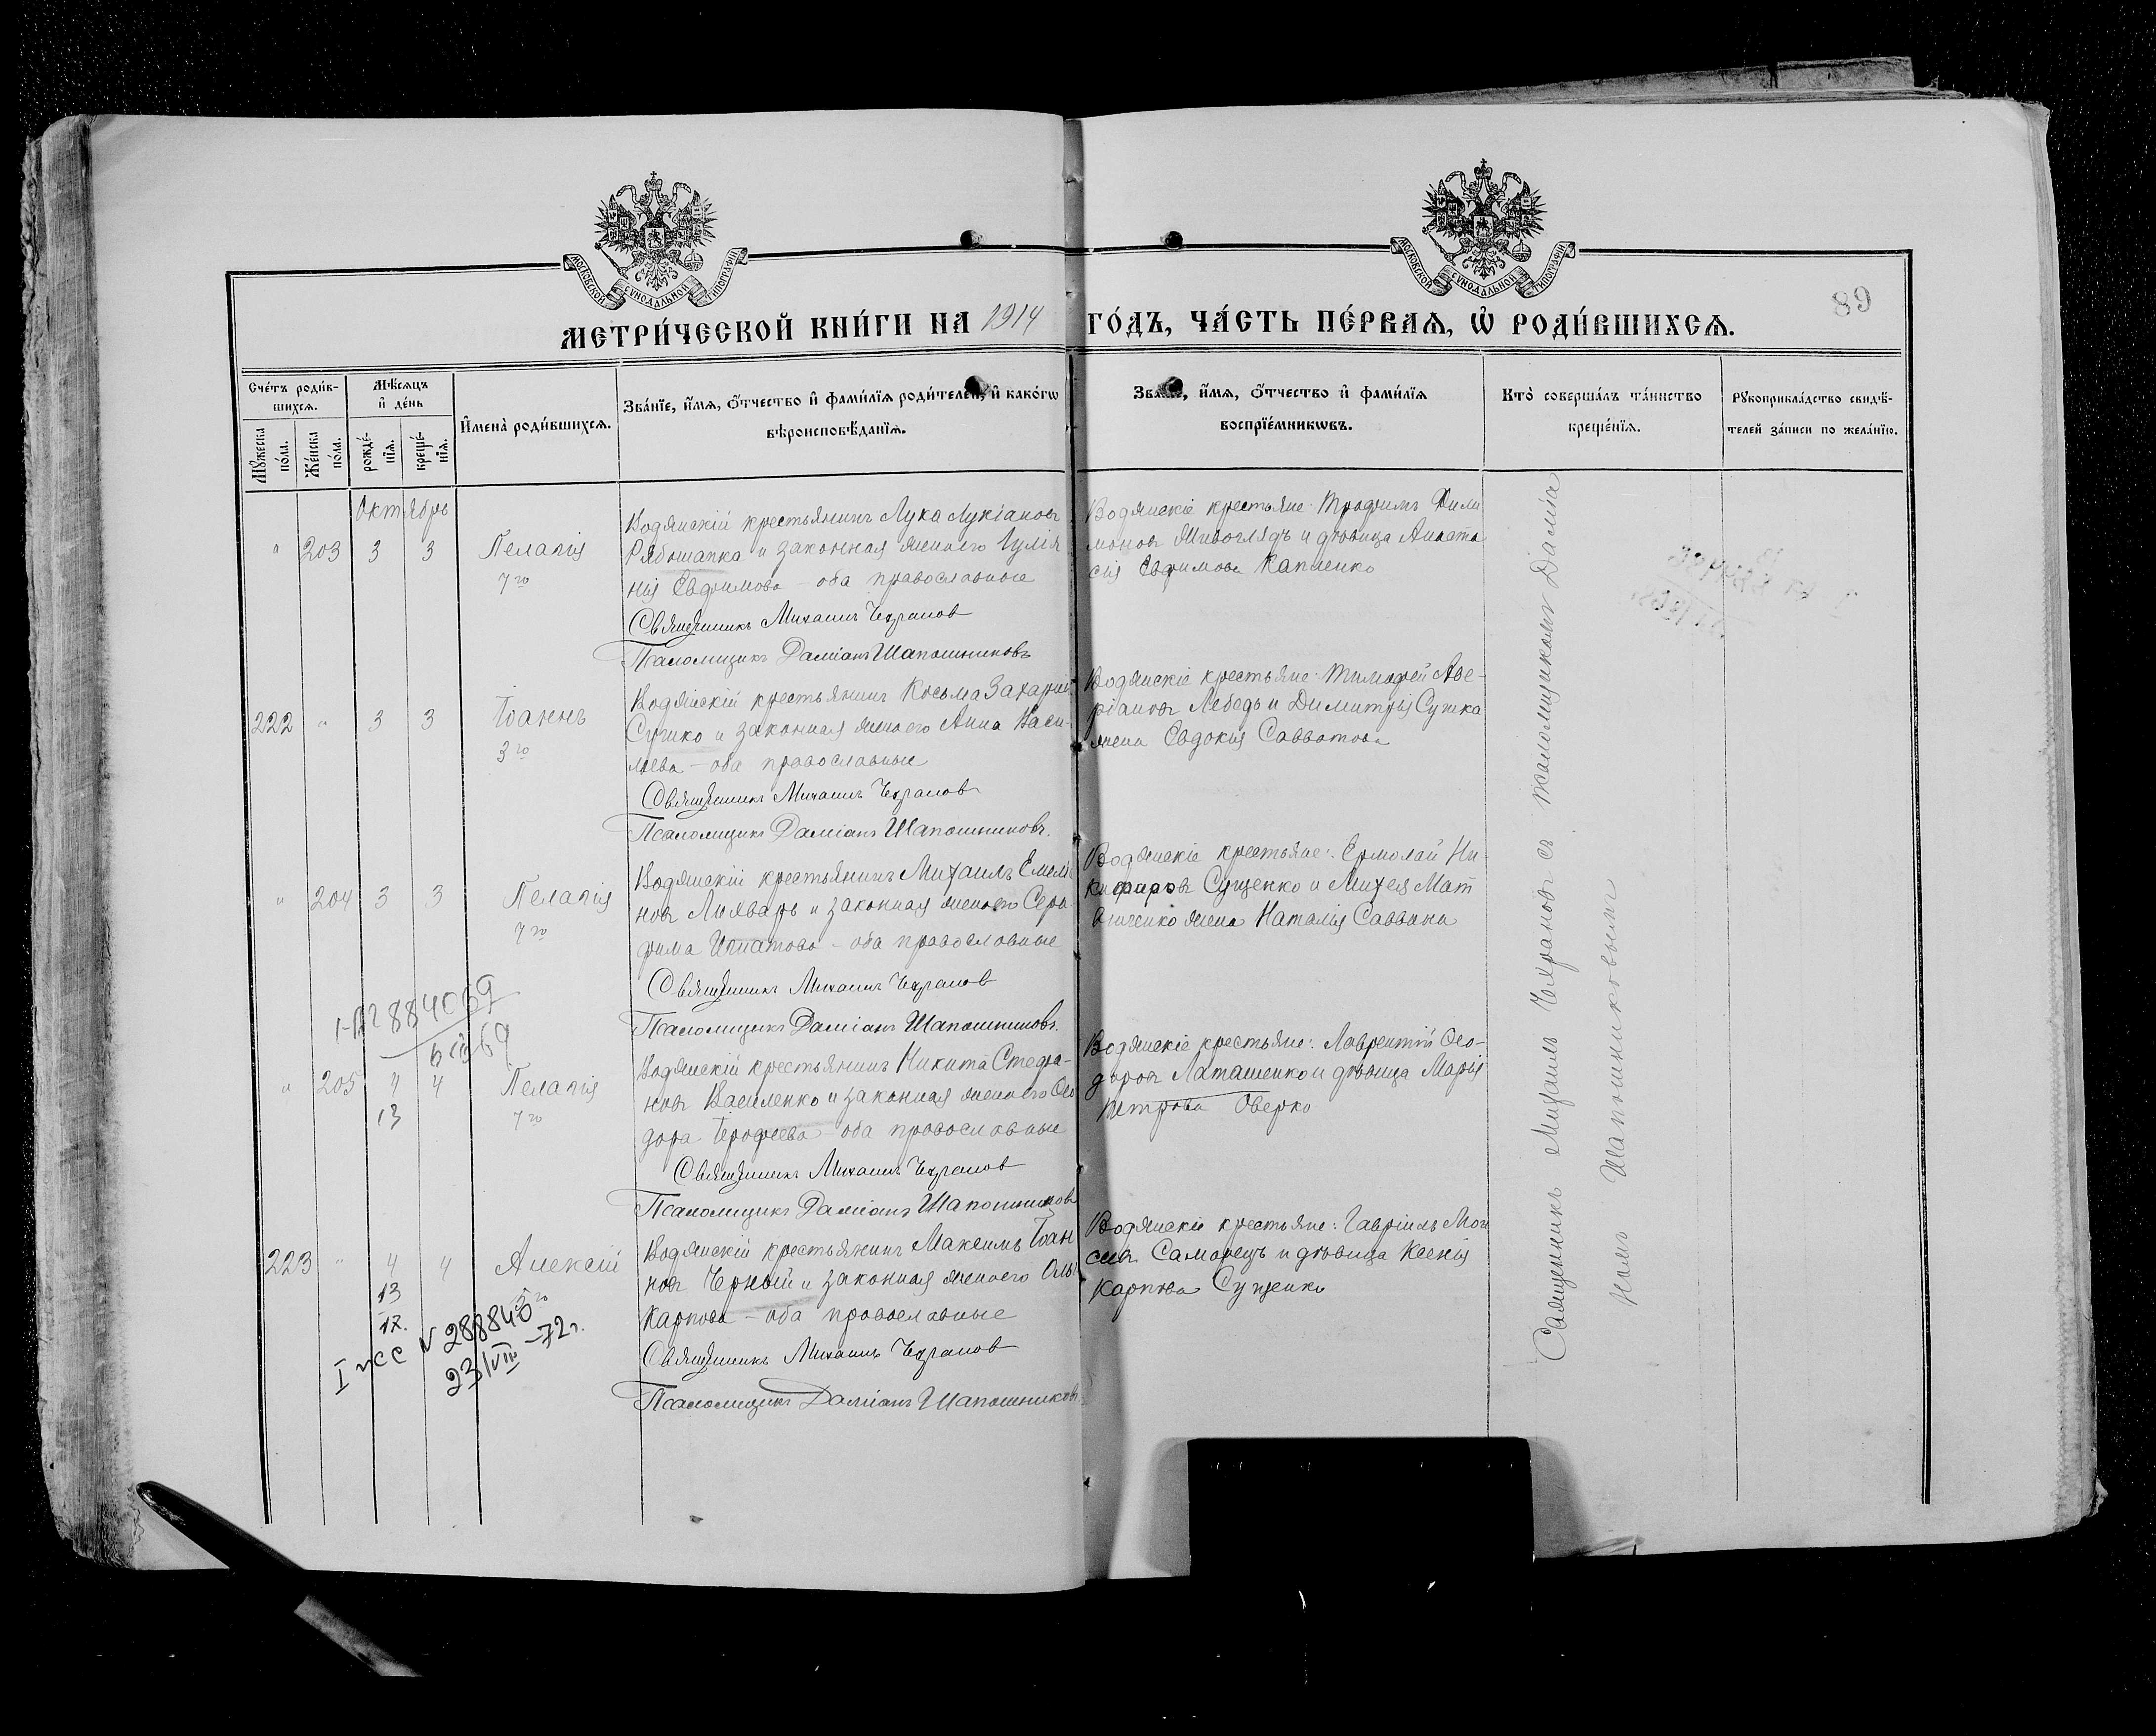 МОСКОВСКОЙ СѴНОДАЛЬНОЙ ТИПОГРАФІИ
МОСКОВСКОЙ СѴНОДАЛЬНОЙ ТИПОГРАФІИ
89
МЕТРИ́ЧЕСКОЙ КНИ́ГИ НА 1914 ГО́ДЪ, ЧА́СТЬ ПЕ́РВАЯ, Ѡ҆ РОДИ́ВШИХСЯ.
Сче́тъ роди́в-
шихся.
Мꙋ́жеска по́ла.
Же́нска по́ла.
Мѣ́сяцъ
и҆ де́нь
рожде́-
нїя.
креще́-
нїя.
И҆мена̀ роди́вшихся.
Зва́нїе, и҆́мя, ѻ҆́тчество и҆ фамѝлїя роди́телей, и҆ како́гѡ
вѣроисповѣ́данїя.
Зва́нїе, и҆́мя, ѻ҆́тчество и҆ фамѝлїя
воспрїе́мникѡвъ.
Кто̀ соверша́лъ та́инство
креще́нїя.
Рꙋкоприкла́дство свидѣ́-
телей за́писи по жела́нїю.
Октябрь
" 203 3 3 Пелагія
7го
Водянскій крестьянинъ Лука Лукіановъ
Рябошапка и законная жена его Іулія
нія Евфимова – оба православные
Священникъ Михаилъ Чехрановъ
Псаломщикъ Даміанъ Шапошниковъ
Водянскіе крестьяне: Трофимъ Фили
моновъ Живоглядъ и дѣвица Анаста
сія Евфимова Капленко
222 " 3 3 Іоаннъ
3го
Водянскій крестьянинъ Косьма Захаріи
и законная жена его Анна Васи-
льева – оба православные
Священникъ Михаилъ Чехрановъ
Псаломщикъ Даміанъ Шапошниковъ.
Водянскіе крестьяне: Тимофей Аве-
ріановъ Лебедь и Димитрія
жена Евдокія Савватова
" 204 3 3 Пелагія
7го
Водянскій крестьянинъ Михаилъ Емелі
новъ и законная жена его Сера
фима Игнатова – оба православные
Священникъ Михаилъ Чехрановъ
Псаломщикъ Даміанъ Шапошниковъ.
Водянскіе крестьяне: Ермолай Ни-
кифоровъ Сущенко и Михея Мат
віиченко жена Наталія Саввина
2884069
69
" 205 4 4 Пелагія
13 7го
Водянскій крестьянинъ Никита Стефа-
новъ Василенко и законная жена его Ѳео
дора Іерофеева – оба православные
Священникъ Михаилъ Чехрановъ
Псаломщикъ Даміанъ Шапошниковъ
Водянскіе крестьяне: Лаврентій Ѳео-
доровъ Латашенко и дѣвица Марія
Петрова Оверко
223 " 4 4 Алексій
13 5го
12.
Водянскій крестьянинъ Максимъ Іоан
новъ Черный и законная жена его Оль
Карпова – оба православные
Священникъ Михаилъ Чехрановъ
Псаломщикъ Даміанъ Шапошниковъ
Водянскіе крестьяне: Гавріилъ Мои
сеевъ Самарецъ и дѣвица Ксенія
Карпова Сущенко
I ЖСС N 288840
23/VIII–72г.
Священникъ Михаилъ Чехрановъ съ псаломщикомъ Даміа
номъ Шапошниковымъ